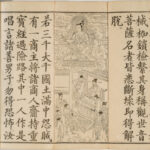 械枷鎖檢繫其身稱觀世音
菩薩名者皆悉斷壞即得解
脫
若三千大千國土滿中怨賊
有一商主將諸商人齎持重
寶經過險路其中一人作是
唱言諸善男子勿得恐怖汝